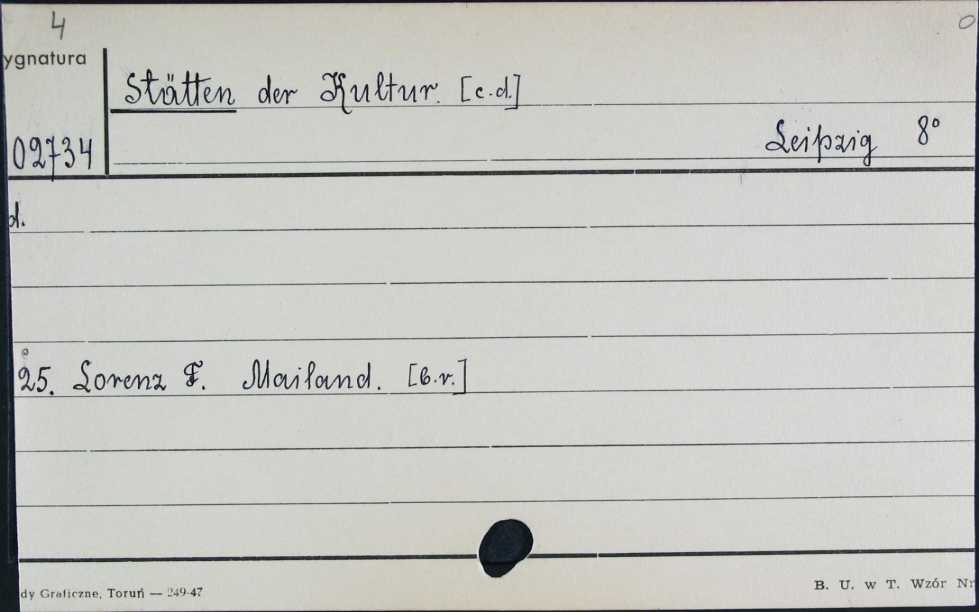 4
0
ygnatura
Stätten der Kultur. [c.d.]
02734
Leipzig 8°
d.
25. Lorenz F. Mailand. [b.r.]
dy Graficzne, Toruń — 249-47
B. U. w T. Wzór Nr